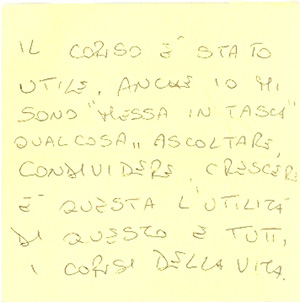 IL CORSO È STATO
UTILE, ANCHE IO MI
SONO "MESSA IN TASCA"
QUALCOSA,, ASCOLTARE,
CONDIVIDERE, CRESCERE
È QUESTA L'UTILITÀ
DI QUESTO E TUTTI,
I CORSI DELLA VITA.